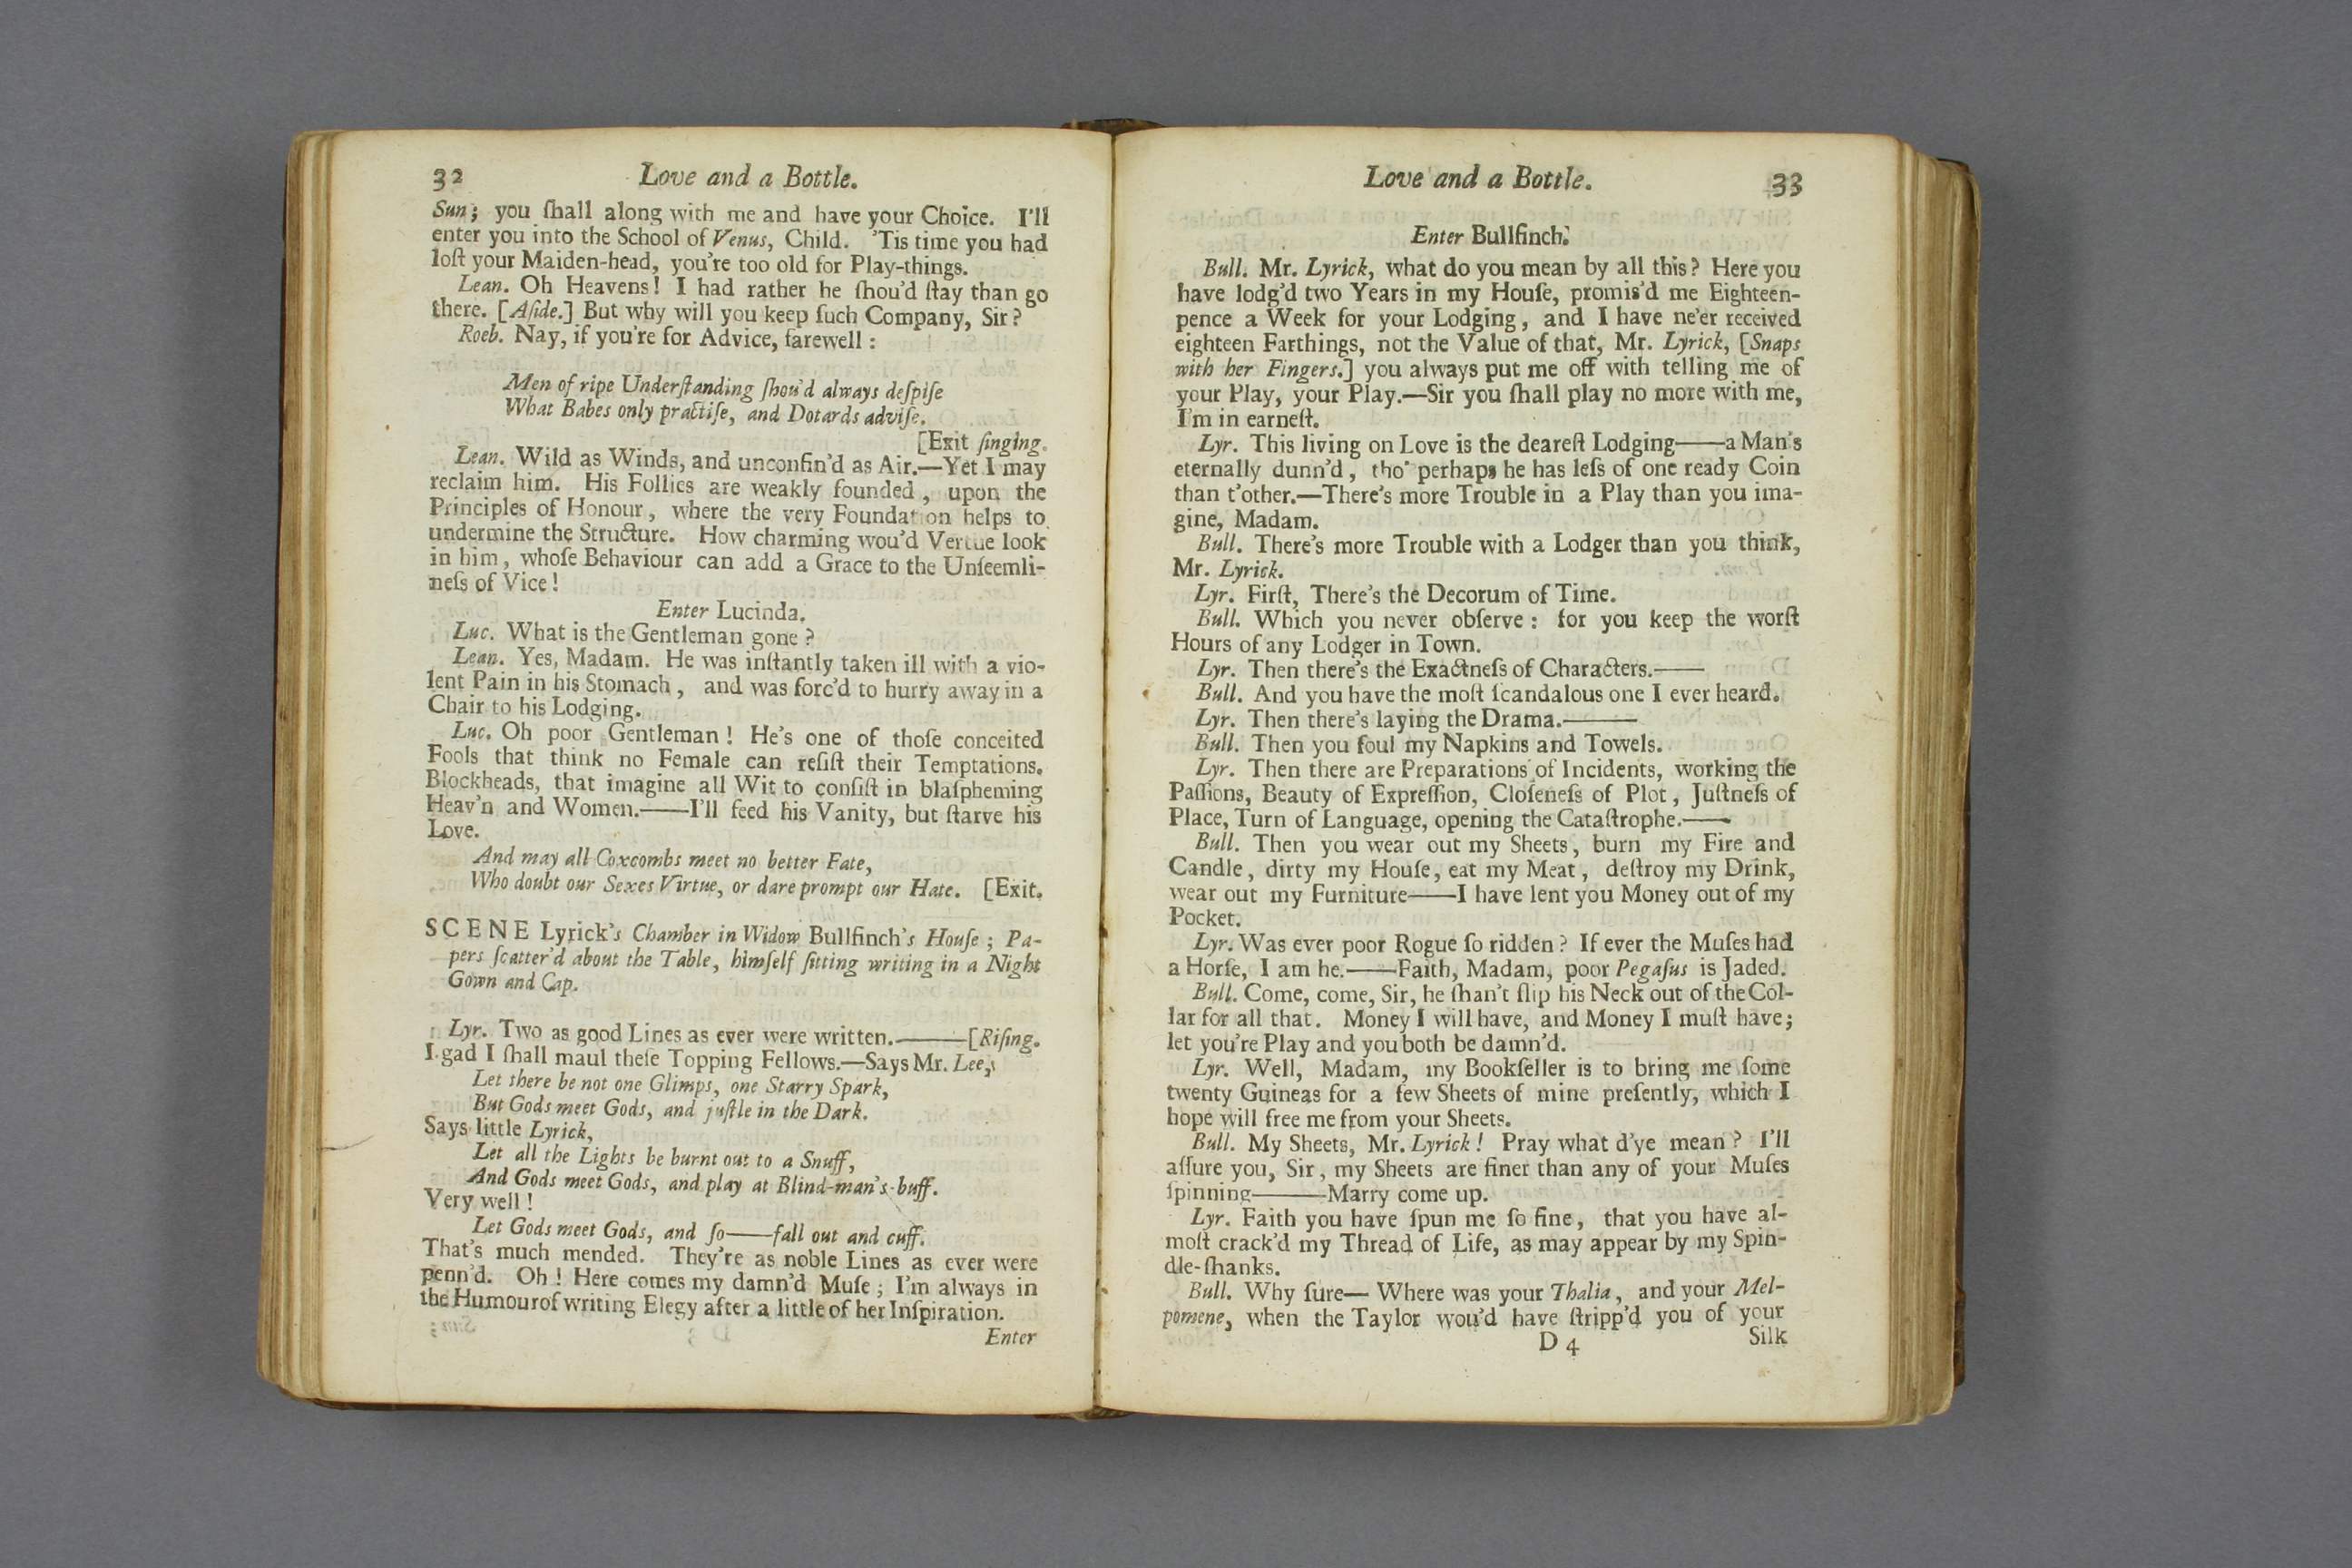 32 Love and a Bottle.
Sun; you ſhall along with me and have your Choice. I'll
enter you into the School of Venus, Child. 'Tis time you had
loſt your Maiden-head, you're too old for Play-things.
Lean. Oh Heavens! I had rather he ſhou'd ſtay than go
there. [Aſide.] But why will you keep ſuch Company, Sir?
Roeb. Nay, if you're for Advice, farewell:
Men of ripe Underſtanding ſhou'd always deſpiſe
What Babes only practiſe, and Dotards adviſe.
[Exit ſinging.
Lean. Wild as Winds, and unconfin'd as Air.—Yet I may
reclaim him. His Follies are weakly founded, upon the
Principles of Honour, where the very Foundation helps to
undermine the Structure. How charming wou'd Vertue look
in him, whoſe Behaviour can add a Grace to the Unſeemli-
neſs of Vice!
Enter Lucinda.
Luc. What is the Gentleman gone?
Lean. Yes, Madam. He was inſtantly taken ill with a vio-
lent Pain in his Stomach, and was forc'd to hurry away in a
Chair to his Lodging.
Luc. Oh poor Gentleman! He's one of thoſe conceited
Fools that think no Female can reſiſt their Temptations.
Blockheads, that imagine all Wit to conſiſt in blaſpheming
Heav'n and Women.——I'll feed his Vanity, but ſtarve his
Love.
And may all Coxcombs meet no better Fate,
Who doubt our Sexes Virtue, or dare prompt our Hate. [Exit.
SCENE Lyrick's Chamber in Widow Bullfinch's Houſe; Pa-
pers ſcatter'd about the Table, himſelf ſitting writing in a Night
Gown and Cap.
Lyr. Two as good Lines as ever were written.——[Riſing.
I gad I ſhall maul theſe Topping Fellows.—Says Mr. Lee,
Let there be not one Glimps, one Starry Spark,
But Gods meet Gods, and juſtle in the Dark.
Says little Lyrick,
Let all the Lights be burnt out to a Snuff,
And Gods meet Gods, and play at Blind-man's-buff.
Very well!
Let Gods meet Gods, and ſo——fall out and cuff.
That's much mended. They're as noble Lines as ever were
penn'd. Oh! Here comes my damn'd Muſe; I'm always in
the Humour of writing Elegy after a little of her Inſpiration.
Enter
Love and a Bottle. 33
Enter Bullfinch.
Bull. Mr. Lyrick, what do you mean by all this? Here you
have lodg'd two Years in my Houſe, promis'd me Eighteen-
pence a Week for your Lodging, and I have ne'er received
eighteen Farthings, not the Value of that, Mr. Lyrick, [Snaps
with her Fingers.] you always put me off with telling me of
your Play, your Play.—Sir you ſhall play no more with me,
I'm in earneſt.
Lyr. This living on Love is the deareſt Lodging——a Man's
eternally dunn'd, tho' perhaps he has leſs of one ready Coin
than t'other.—There's more Trouble in a Play than you ima-
gine, Madam.
Bull. There's more Trouble with a Lodger than you think,
Mr. Lyrick.
Lyr. Firſt, There's the Decorum of Time.
Bull. Which you never obſerve: for you keep the worſt
Hours of any Lodger in Town.
Lyr. Then there's the Exactneſs of Characters.——
Bull. And you have the moſt ſcandalous one I ever heard.
Lyr. Then there's laying the Drama.——
Bull. Then you foul my Napkins and Towels.
Lyr. Then there are Preparations of Incidents, working the
Paſſions, Beauty of Expreſſion, Cloſeneſs of Plot, Juſtneſs of
Place, Turn of Language, opening the Cataſtrophe.——
Bull. Then you wear out my Sheets, burn my Fire and
Candle, dirty my Houſe, eat my Meat, deſtroy my Drink,
wear out my Furniture——I have lent you Money out of my
Pocket.
Lyr. Was ever poor Rogue ſo ridden? If ever the Muſes had
a Horſe, I am he.——Faith, Madam, poor Pegaſus is Jaded.
Bull. Come, come, Sir, he ſhan't ſlip his Neck out of the Col-
lar for all that. Money I will have, and Money I muſt have;
let you're Play and you both be damn'd.
Lyr. Well, Madam, my Bookſeller is to bring me ſome
twenty Guineas for a few Sheets of mine preſently, which I
hope will free me from your Sheets.
Bull. My Sheets, Mr. Lyrick! Pray what d'ye mean? I'll
aſſure you, Sir, my Sheets are finer than any of your Muſes
ſpinning——Marry come up.
Lyr. Faith you have ſpun me ſo fine, that you have al-
moſt crack'd my Thread of Life, as may appear by my Spin-
dle-ſhanks.
Bull. Why ſure— Where was your Thalia, and your Mel-
pomene, when the Taylor wou'd have ſtripp'd you of your
D 4 Silk